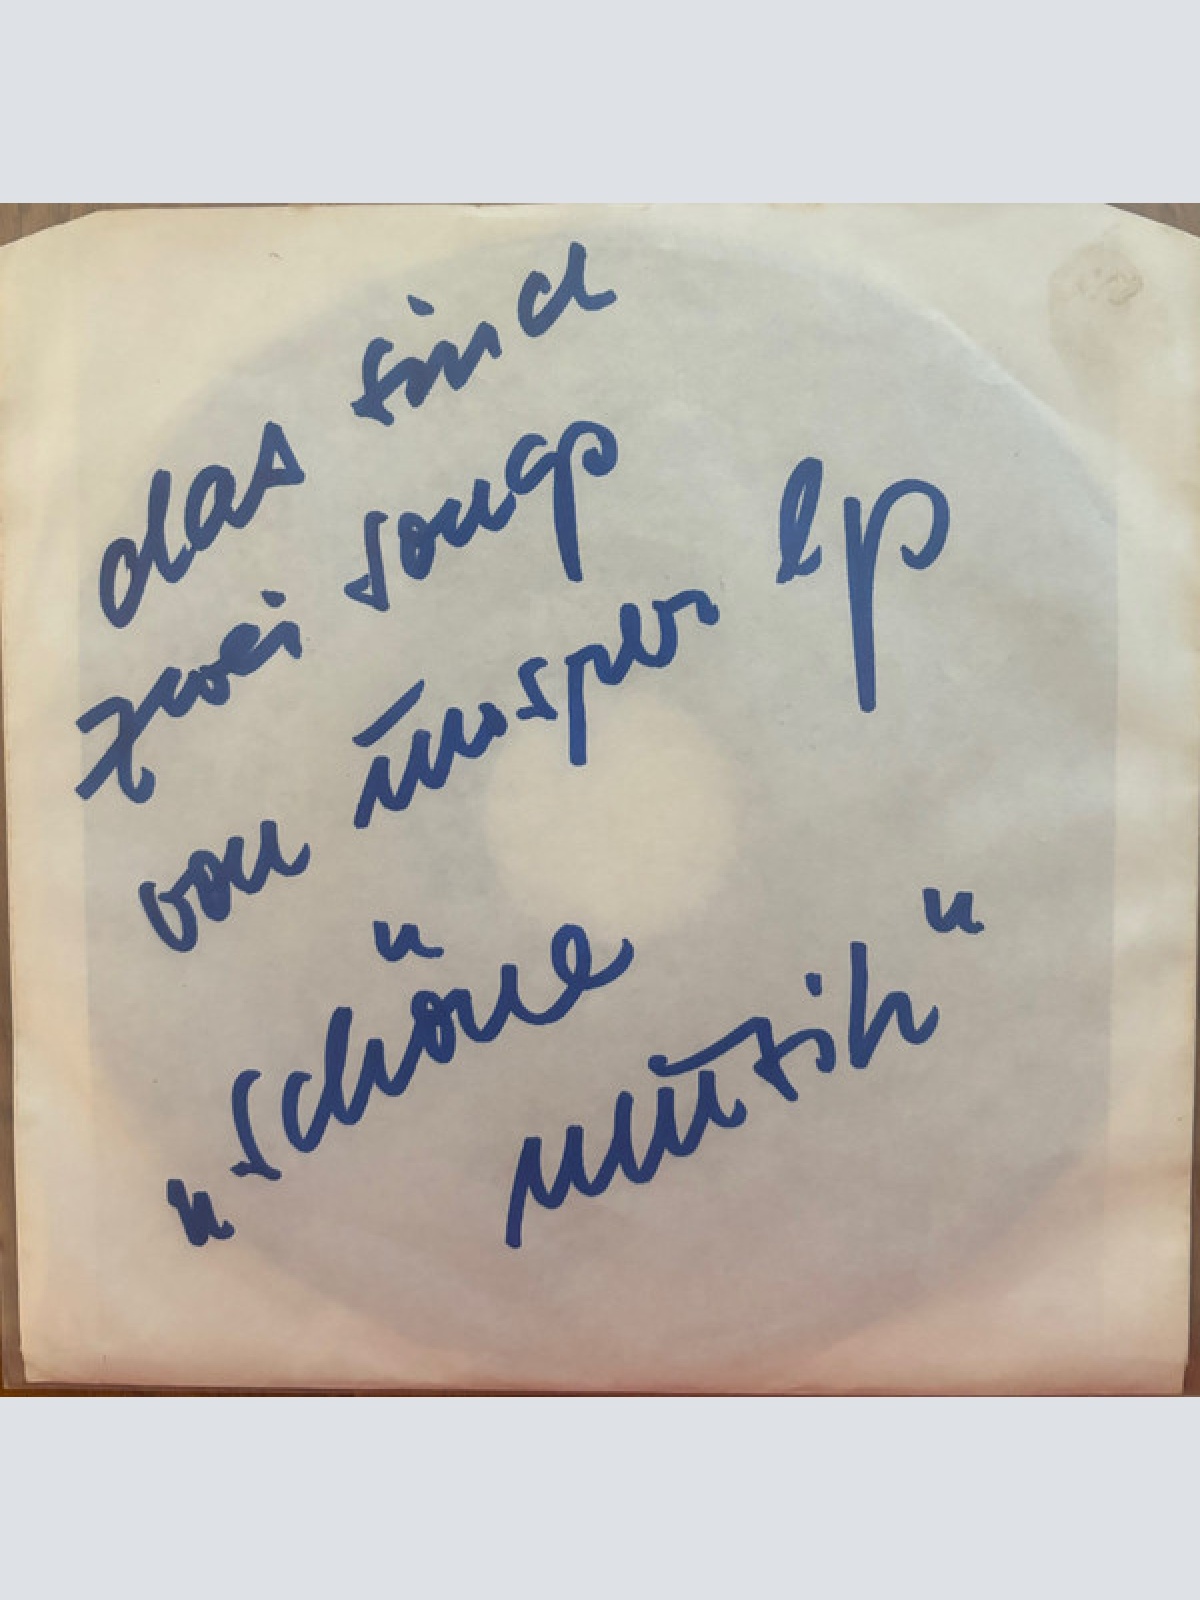 das sind
zwei songs
von unserer lp
"schöne
musik"